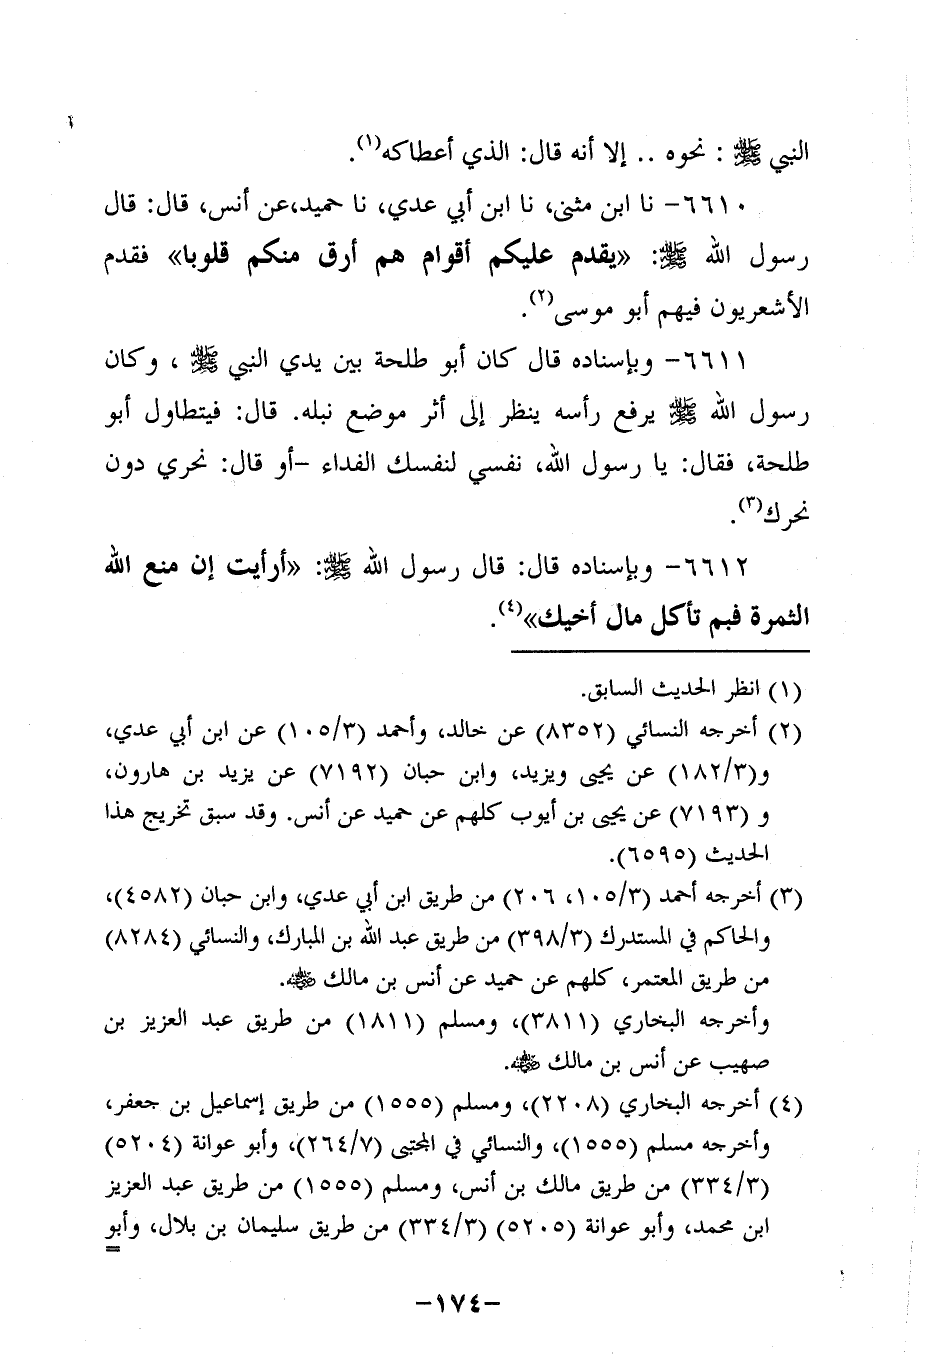 النبي ﷺ : نحوه .. إلا أنه قال: الذي أعطاكه(١).
٦٦١٠- نا ابن مثنى، نا ابن أبي عدي، نا حميد،عن أنس، قال: قال
رسول الله ﷺ: «يقدم عليكم أقوام هم أرق منكم قلوبا» فقدم
الأشعريون فيهم أبو موسى(٢).
٦٦١١- وبإسناده قال كان أبو طلحة بين يدي النبي ﷺ ، وكان
رسول الله ﷺ يرفع رأسه ينظر إلى أثر موضع نبله. قال: فيتطاول أبو
طلحة، فقال: يا رسول الله، نفسي لنفسك الفداء -أو قال: نحري دون
نحرك(٣).
٦٦١٢- وبإسناده قال: قال رسول الله ﷺ: «أرأيت إن منع الله
الثمرة فبم تأكل مال أخيك»(٤).
(١) انظر الحديث السابق.
(٢) أخرجه النسائي (٨٣٥٢) عن خالد، وأحمد (١٠٥/٣) عن ابن أبي عدي،
و(١٨٢/٣) عن يحيى ويزيد، وابن حبان (٧١٩٢) عن يزيد بن هارون،
و (٧١٩٣) عن يحيى بن أيوب كلهم عن حميد عن أنس. وقد سبق تخريج هذا
الحديث (٦٥٩٥).
(٣) أخرجه أحمد (١٠٥/٣، ٢٠٦) من طريق ابن أبي عدي، وابن حبان (٤٥٨٢)،
والحاكم في المستدرك (٣٩٨/٣) من طريق عبد الله بن المبارك، والنسائي (٨٢٨٤)
من طريق المعتمر، كلهم عن حميد عن أنس بن مالك رضي الله عنه.
وأخرجه البخاري (٣٨١١)، ومسلم (١٨١١) من طريق عبد العزيز بن
صهيب عن أنس بن مالك رضي الله عنه.
(٤) أخرجه البخاري (٢٢٠٨)، ومسلم (١٥٥٥) من طريق إسماعيل بن جعفر،
وأخرجه مسلم (١٥٥٥)، والنسائي في المجتبى (٢٦٤/٧)، وأبو عوانة (٥٢٠٤)
(٣٣٤/٣) من طريق مالك بن أنس، ومسلم (١٥٥٥) من طريق عبد العزيز
ابن محمد، وأبو عوانة (٥٢٠٥) (٣٣٤/٣) من طريق سليمان بن بلال، وأبو
=
-١٧٤-